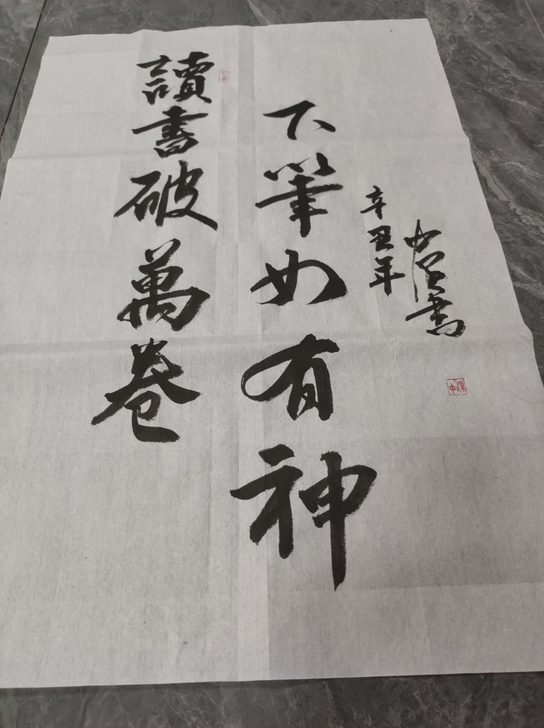 讀書破萬卷
下筆如有神
辛丑年
書